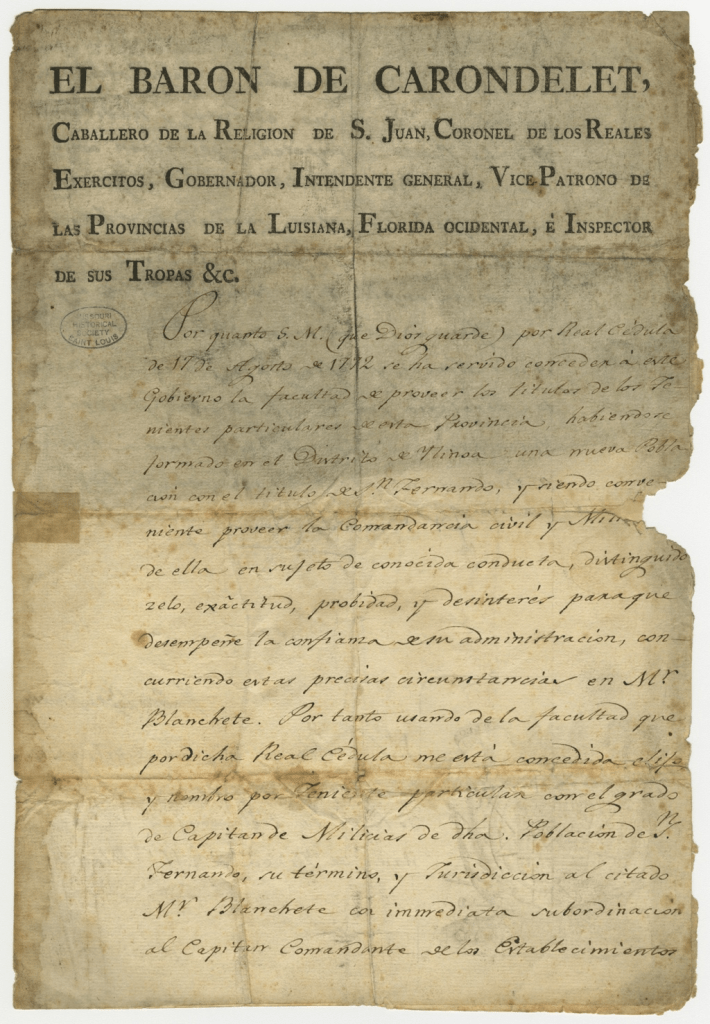 EL BARON DE CARONDELET,
CABALLERO DE LA RELIGION DE S. JUAN, CORONEL DE LOS REALES
EXERCITOS, GOBERNADOR, INTENDENTE GENERAL, VICE-PATRONO DE
LAS PROVINCIAS DE LA LUISIANA, FLORIDA OCIDENTAL, É INSPECTOR
DE SUS TROPAS &C.
MISSOURI
HISTORICAL
SOCIETY
SAINT LOUIS
Por quanto S. M. (que Dios guarde) por Real Cédula
de 17 de Agosto de 1772 se ha servido conceder à este
Gobierno la facultad de proveer los titulos de los Te-
nientes particulares de esta Provincia, habiendose
formado en el Distrito de Ylinoa una nueva Pobla
cion con el titulo de Sn. Fernando, y siendo conve-
niente proveer la Comandancia civil y
de ella en sujeto de conocida conducta, distinguido
zelo, exâctitud, probidad, y desinterés para que
desempeñe la confianza de su administracion, con-
curriendo estas precisas circunstancias en Mr.
Blanchete. Por tanto usando de la facultad que
por dicha Real Cédula me está concedida elijo
y nombro por Teniente particular con el grado
de Capitan de Milicias de dha. Población de Sn.
Fernando, su término, y Jurisdiccion al citado
Mr. Blanchete con immediata subordinación
al Capitan Comandante de los Establecimientos